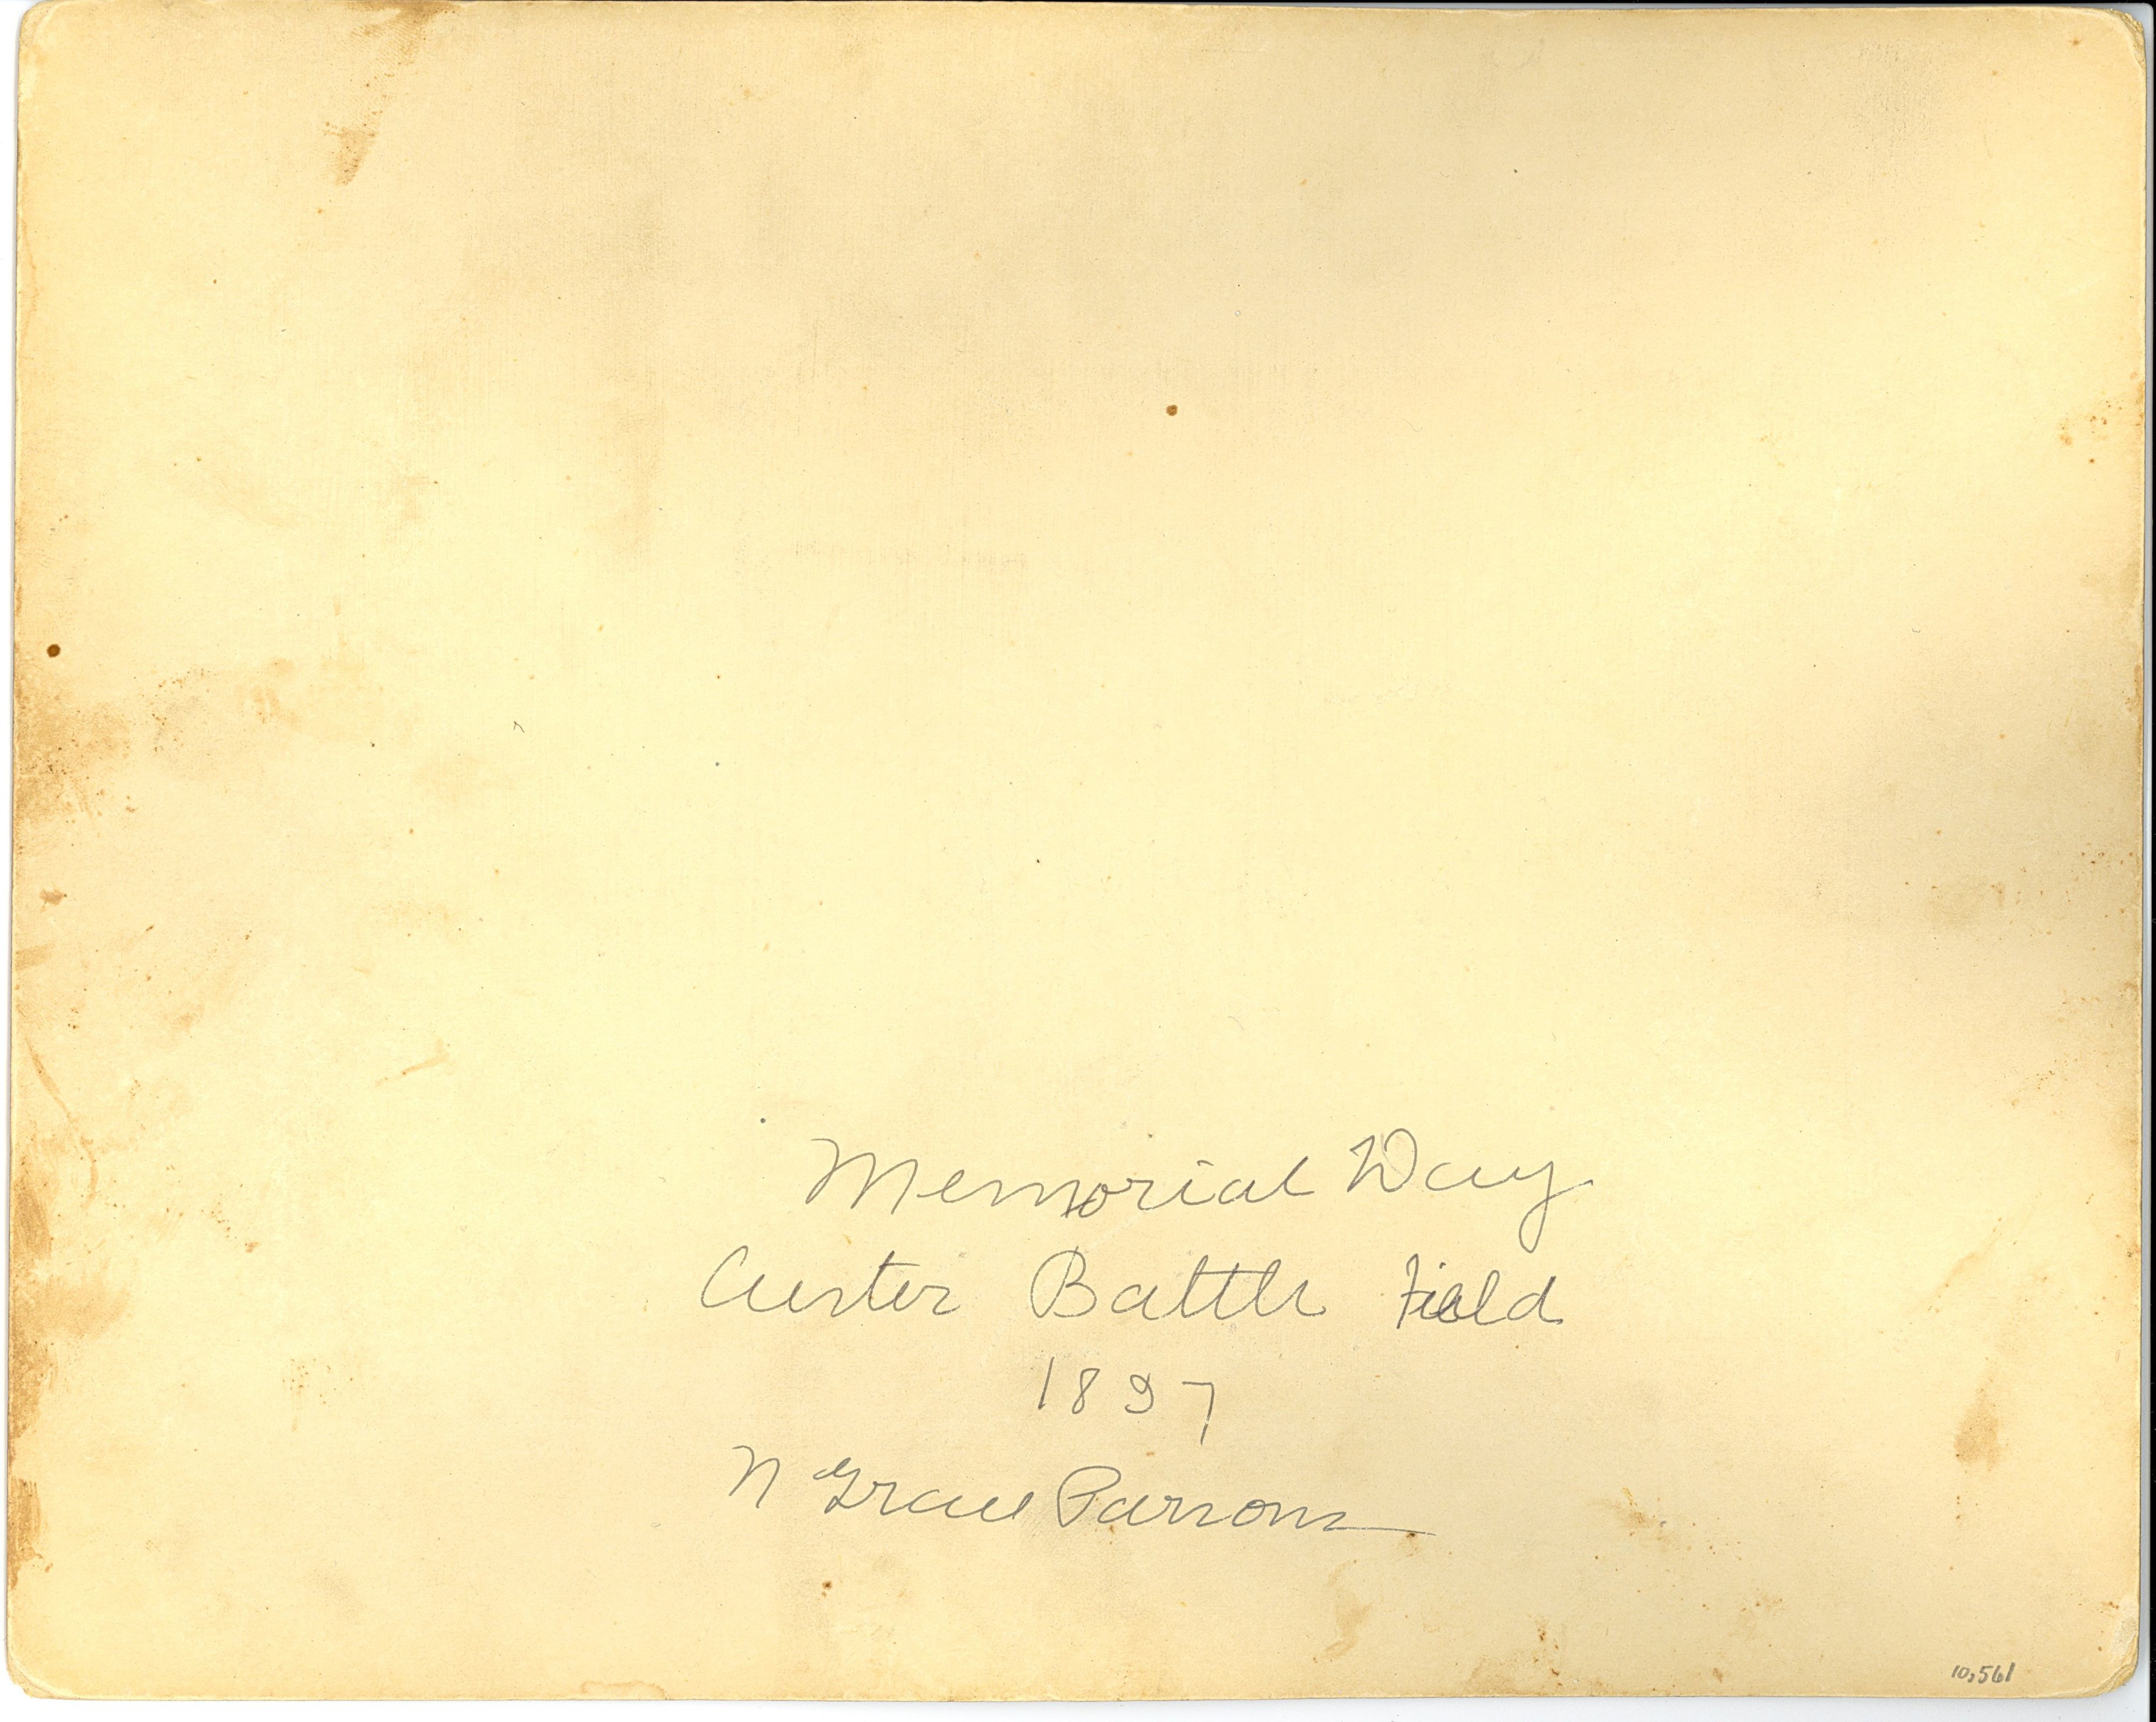 Memorial Day
Custer Battle Field
1897
N Grace Parsons
10,561